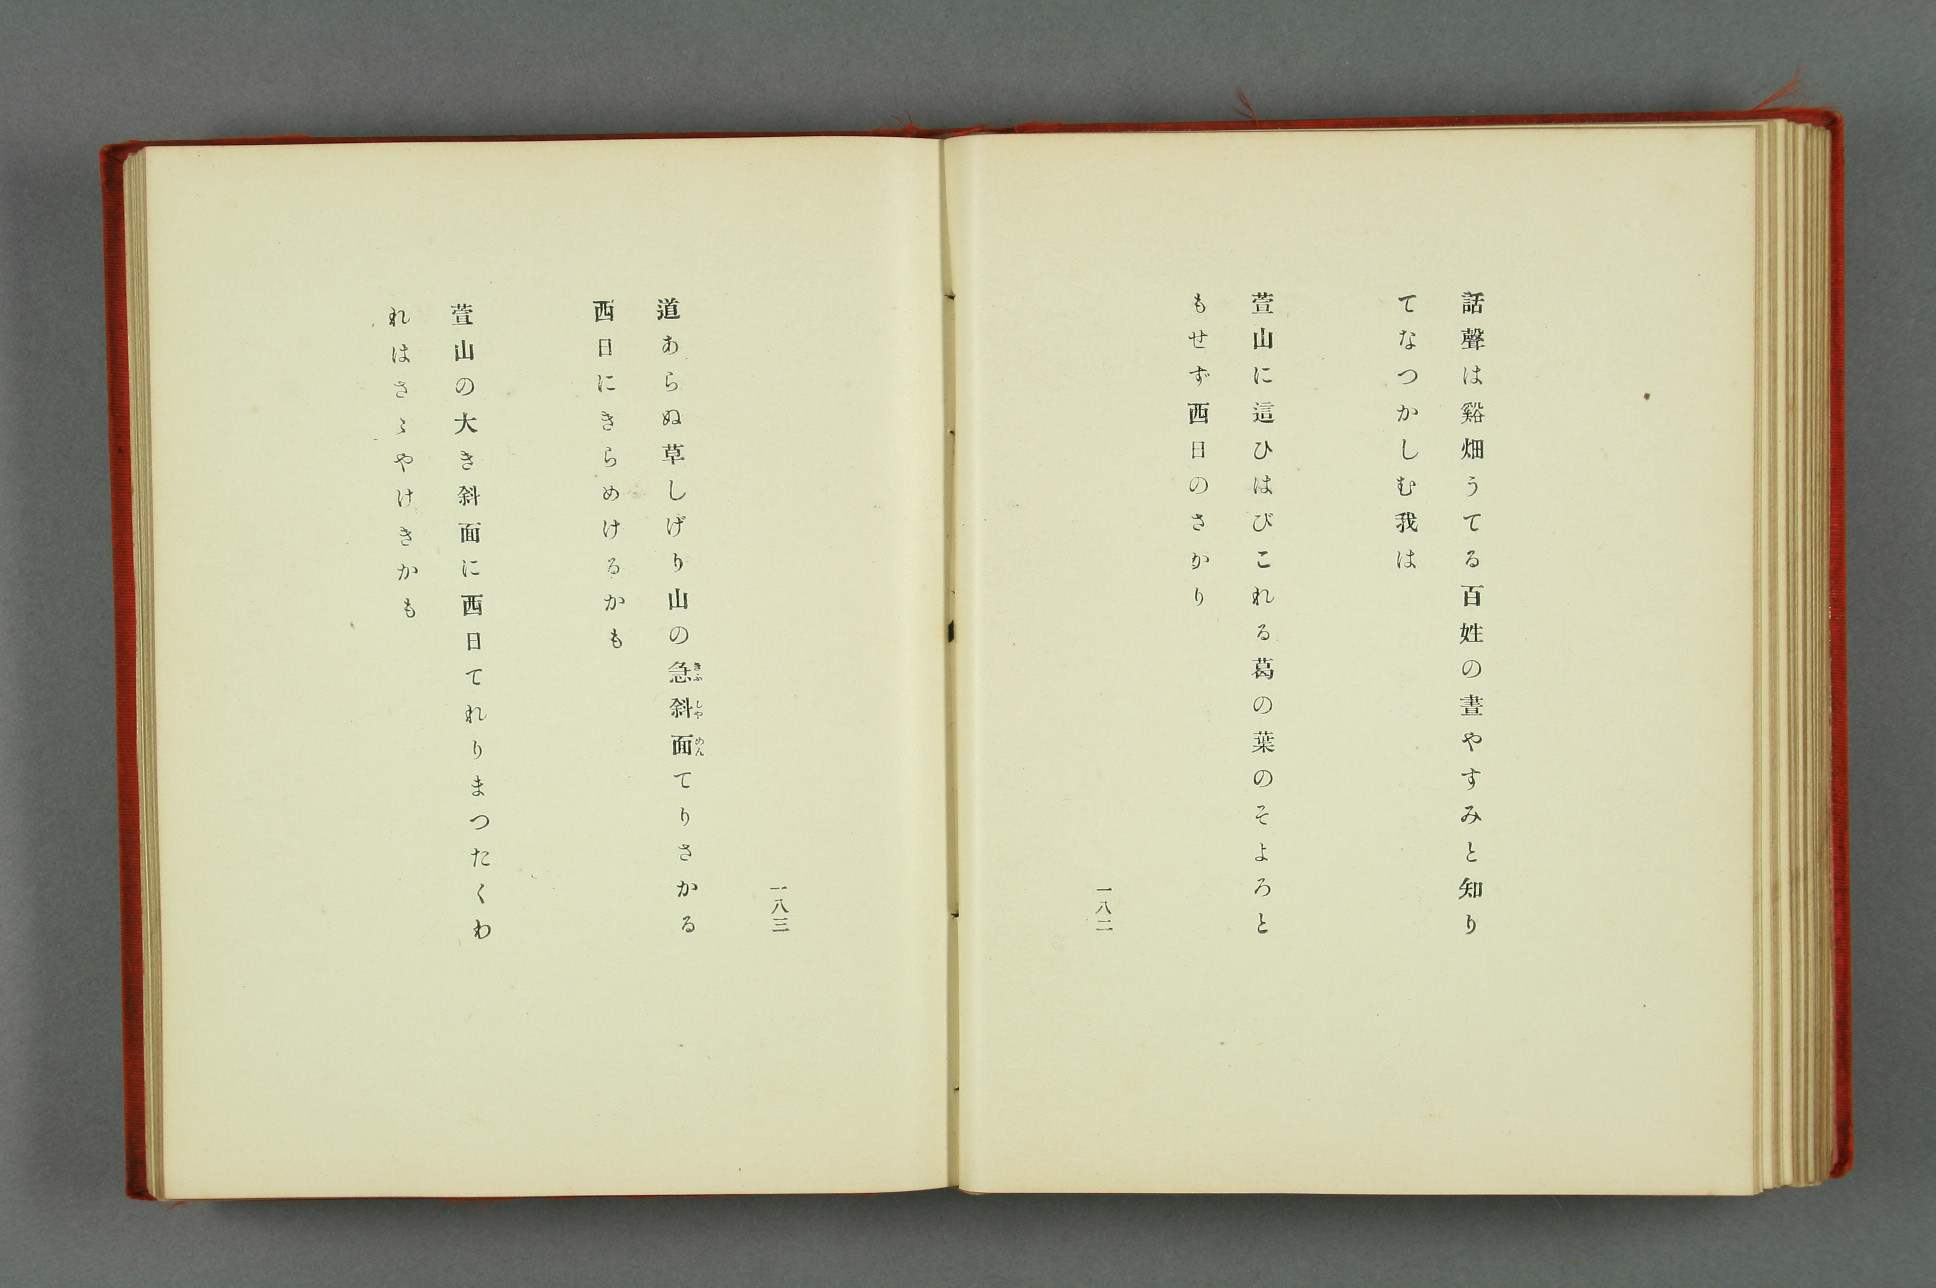 話聲は谿畑うてる百姓の晝やすみと知り
てなつかしむ我は
萱山に這ひはびこれる葛の葉のそよろと
もせず西日のさかり
一八二
一八三
道あらぬ草しげり山の急斜面てりさかる
きふしやめん
西日にきらめけるかも
萱山の大き斜面に西日てれりまつたくわ
れはさゝやけきかも